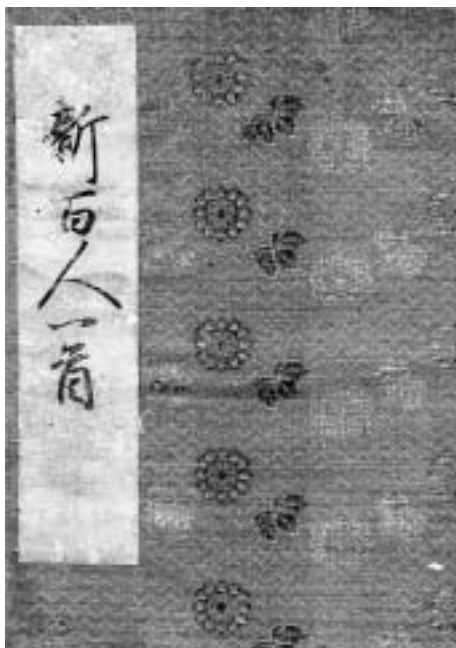 新百人一首